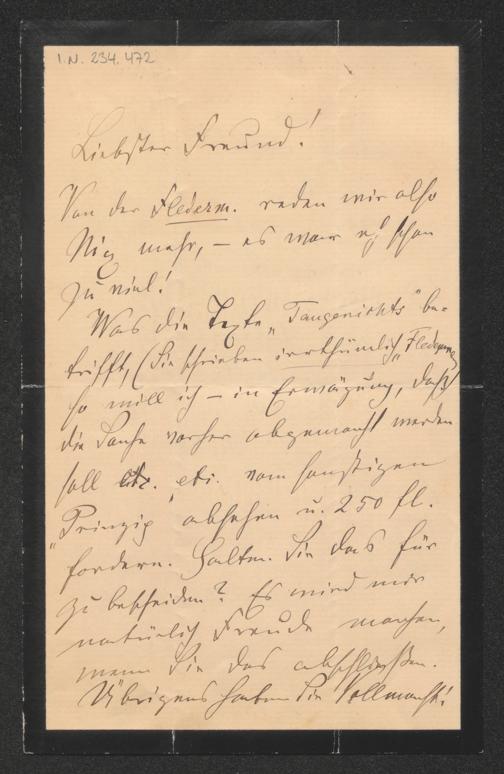 I.N. 234.472
Liebster Freund!
Von der Flederm. reden wir also
Nix mehr, – es war eh schon
zu viel!
Was die Texte „Taugenichts" be-
trifft, (Sie schrieben irrthümlich „Flederm."
so will ich – in Erwägung, daß
die Sache vorher abgemacht werden
soll etc. etc. vom sonstigen
"Prinzip" absehen u. 250 fl.
fordern. Halten Sie das für
zu bescheiden? Es wird mir
natürlich Freude machen,
wenn Sie das abschließen.
Übrigens haben Sie Vollmacht!